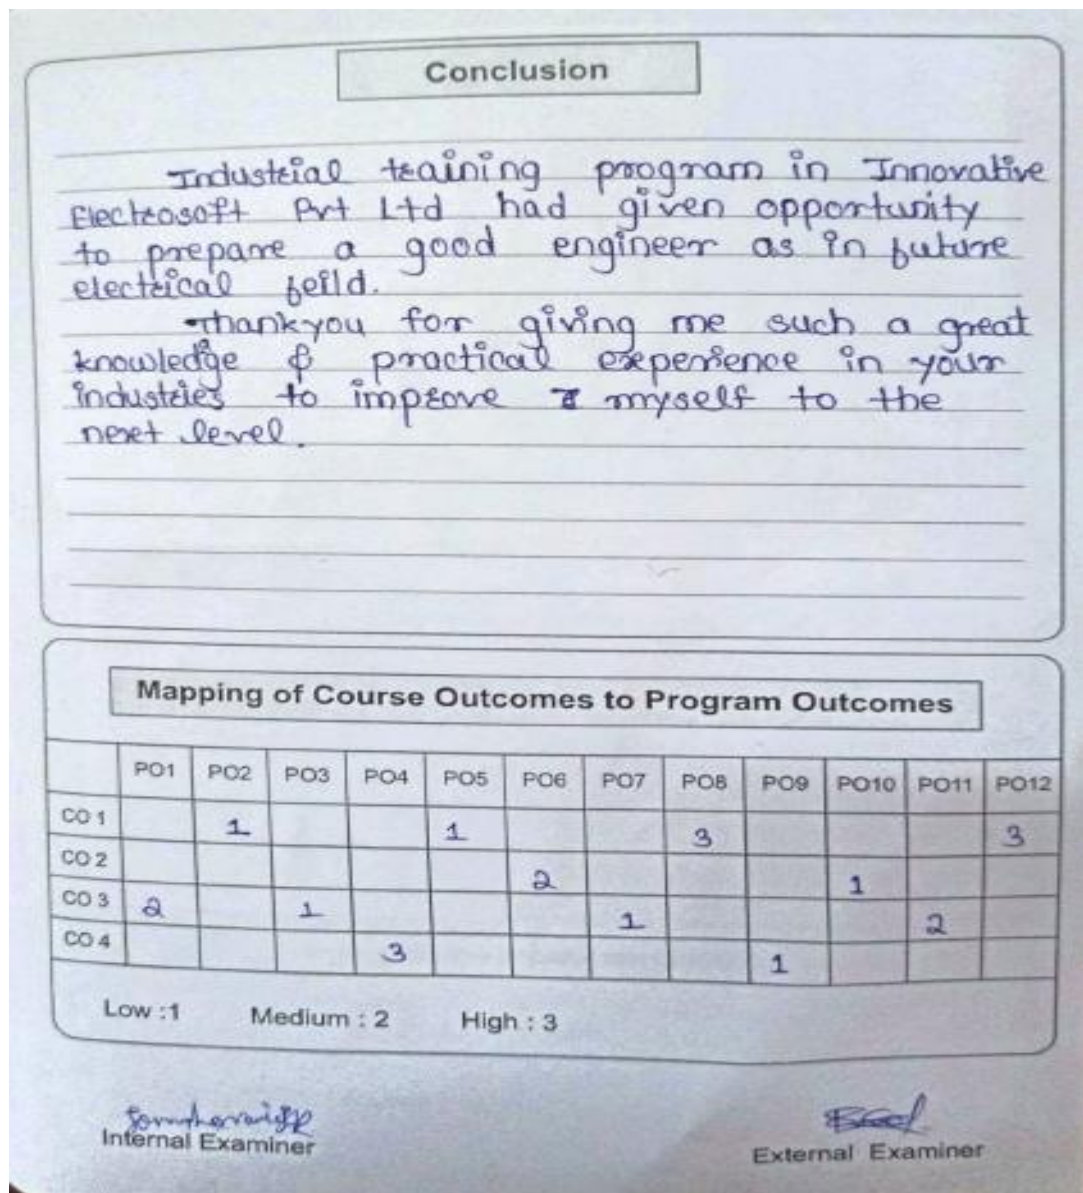 Conclusion
Industrial training program in Innovative
Electrosoft Pvt Ltd had given opportunity
to prepare a good engineer as in future
electrical feild.
Thankyou for giving me such a great
knowledge & practical experience in your
industries to improve myself to the
next level.
Mapping of Course Outcomes to Program Outcomes
PO1 PO2 PO3 PO4 PO5 PO6 PO7 PO8 PO9 PO10 PO11 PO12
CO 1 1 1 3 3
CO 2 2 1
CO 3 2 1 1 2
CO 4 3 1
Low :1 Medium : 2 High : 3
Internal Examiner
External Examiner